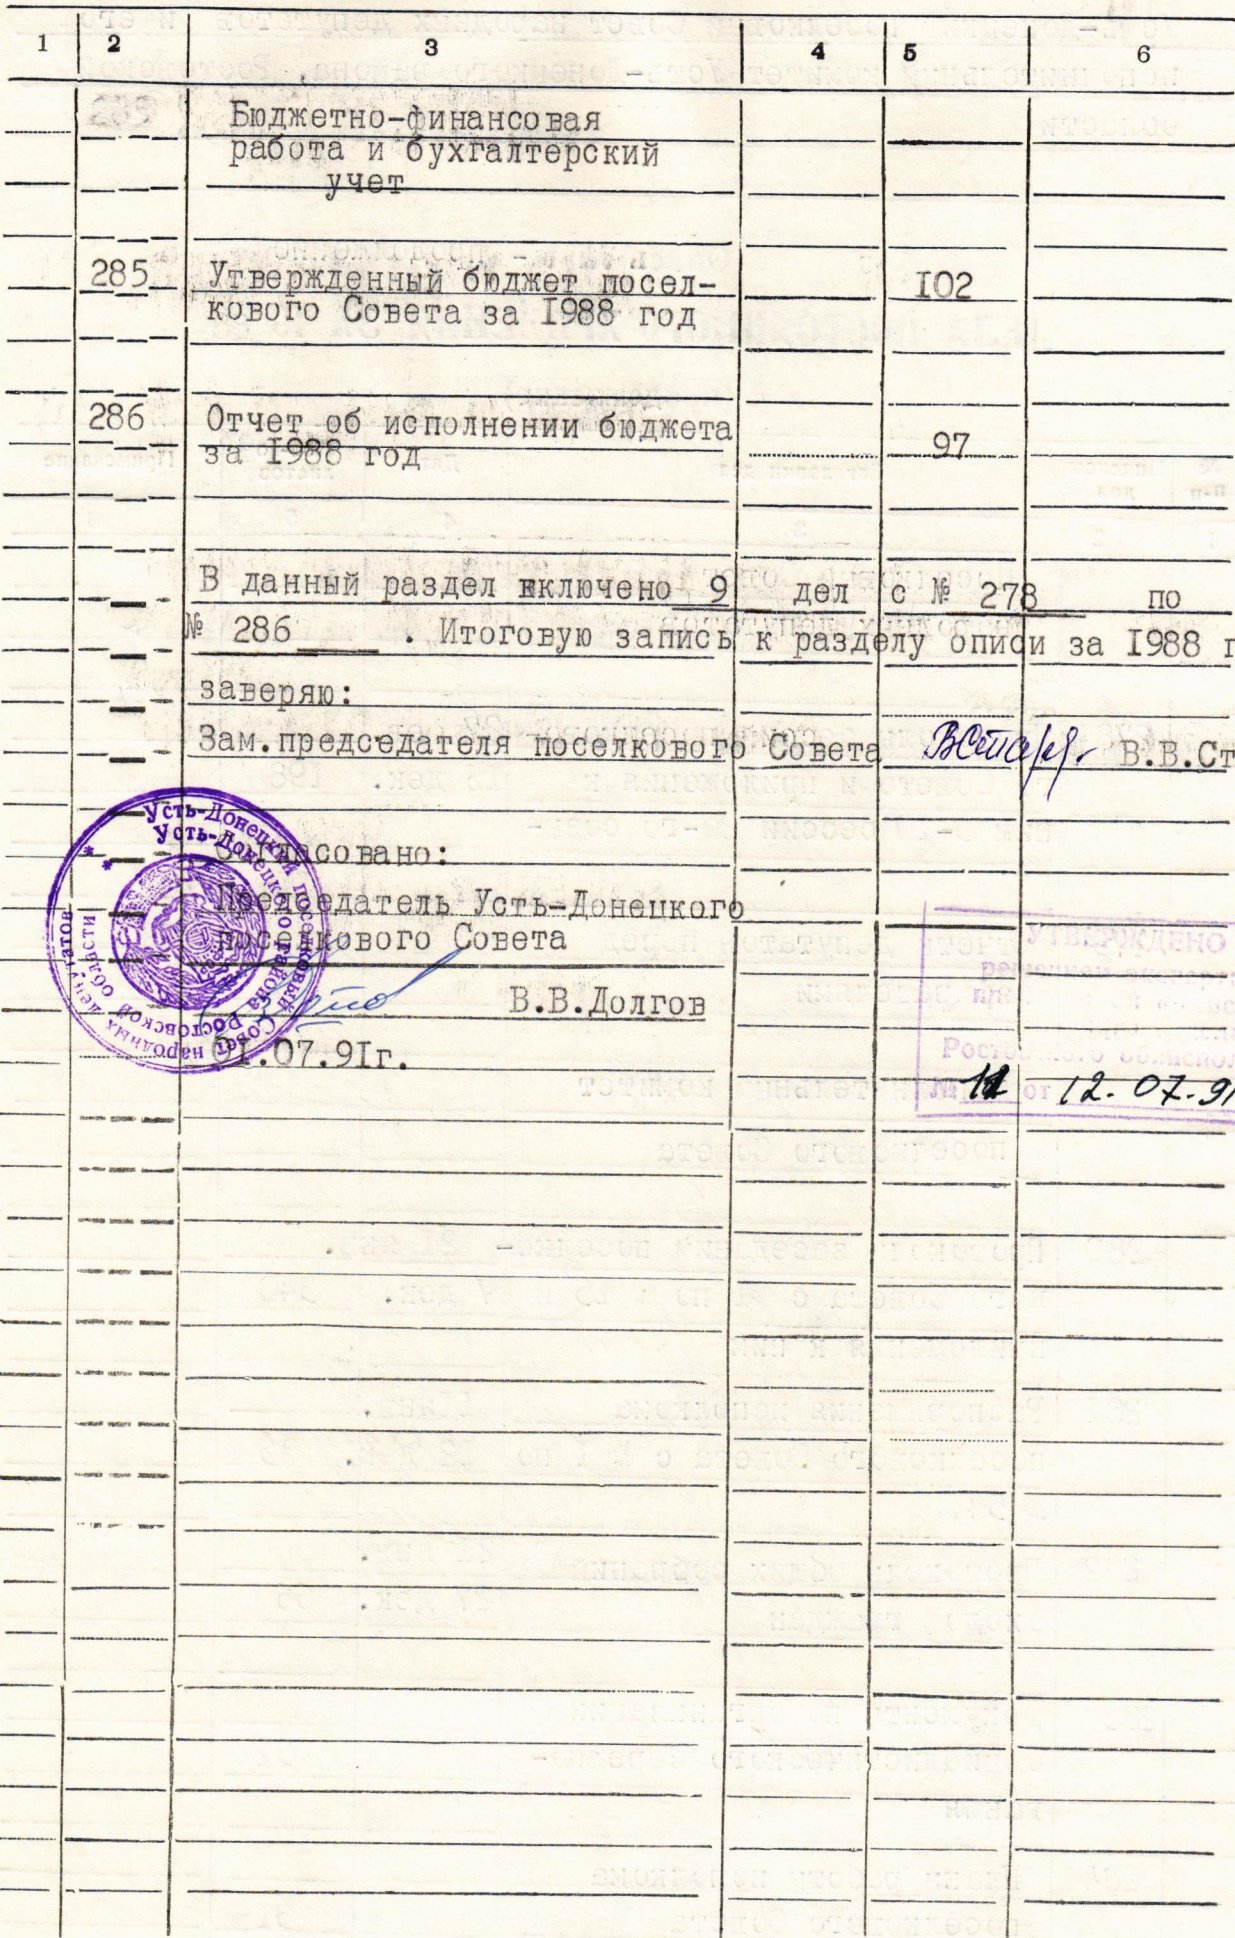 1 2 3 4 5 6
Бюджетно-финансовая
работа и бухгалтерский
учет
285 Утвержденный бюджет посел- I02
кового Совета за I988 год
286 Отчет об исполнении бюджета 97
за I988 год
В данный раздел включено 9 дел с № 278 по
№ 286 . Итоговую запись к разделу описи за I988 г
заверяю:
Зам.председателя поселкового Совета В.В.Ст
Согласовано:
Председатель Усть-Донецкого
поселкового Совета
В.В.Долгов
0I.07.9Iг.
Усть-Донецкий поселковый Совет народных депутатов
Усть-Донецкого района Ростовской области
УТВЕРЖДЕНО
решением
№ от 12.07.91